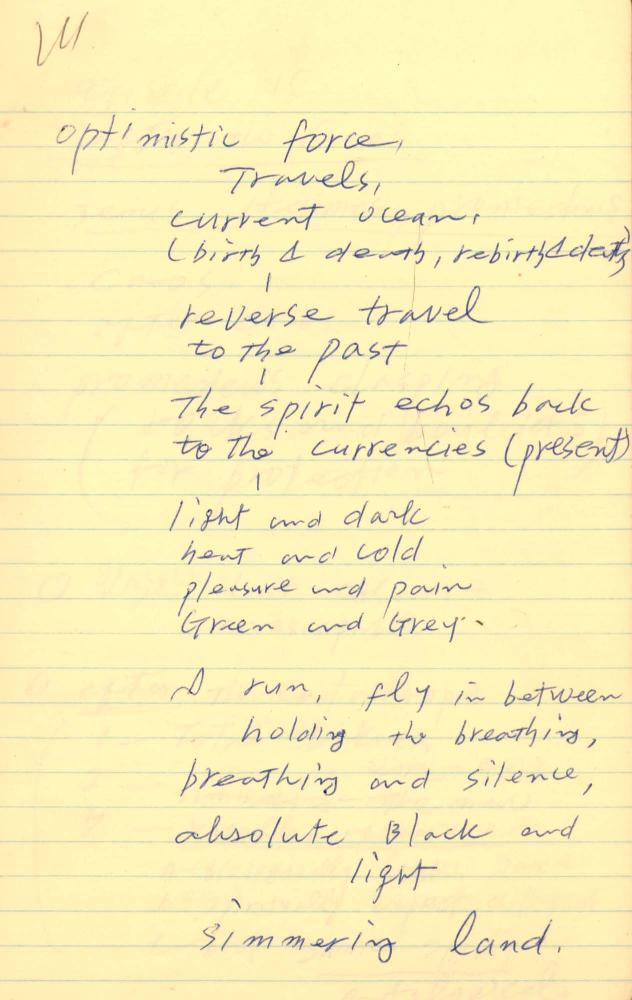 optimistic force,
Travels,
current ocean,
(birth & death, rebirth & death)
reverse travel
to the past
The spirit echos back
to the currencies (present)
light and dark
heat and cold
pleasure and pain
Green and Grey.
I run, fly in between
holding the breathing,
breathing and silence,
absolute Black and
light
simmering land.